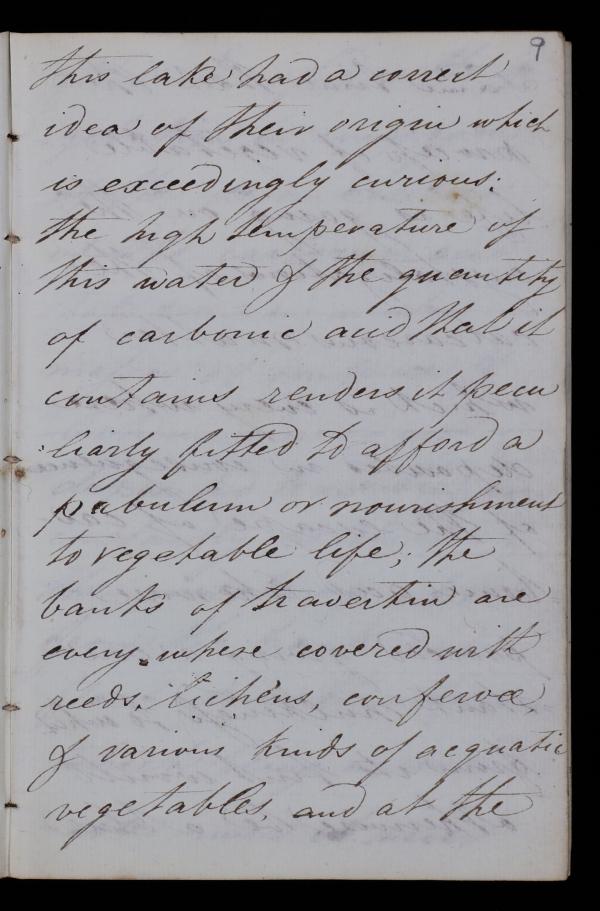 9
this lake had a correct
idea of their origin which
is exceedingly curious:
the high temperature of
this water & the quantity
of carbonic acid that it
contains renders it pecu
:liarly fitted to afford a
pabulum or nourishment
to vegetable life; the
banks of travertin are
every where covered with
reeds, lichens, confervœ,
& various kinds of acquatic
vegetables, and at the